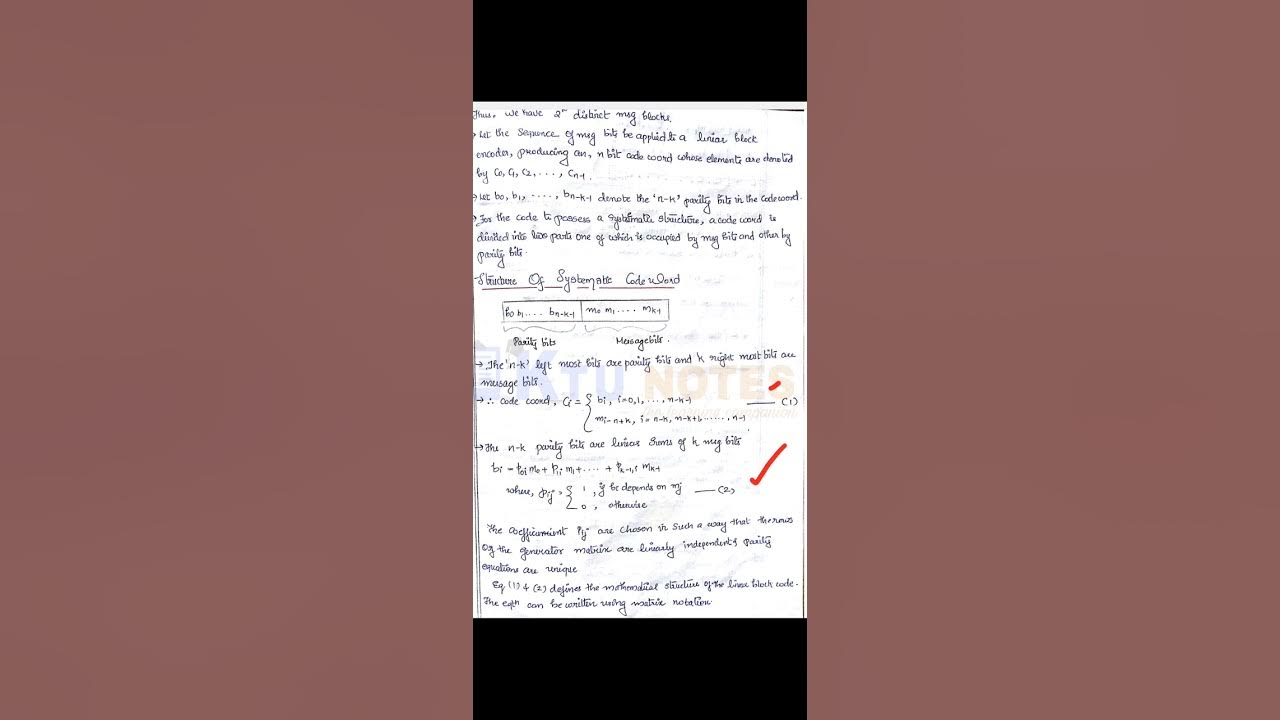 Thus, we have 2ⁿ distinct msg blocks.
→ Let the Sequence of msg bits be applied to a linear block
encoder, producing an, n bit code word whose elements are denoted
by C0, C1, C2, . . . , Cn-1.
→ Let b0, b1, . . . . ., bn-k-1 denote the 'n-k' parity bits in the codeword.
→ For the code to possess a systematic structure, a code word is
divided into two parts one of which is occupied by msg bit and other by
parity bits.
Structure Of Systematic Code Word
b0 b1 . . . . bn-k-1 | m0 m1 . . . . mk-1
Parity bits Message bits.
→ The 'n-k' left most bits are parity bits and k right most bits are
message bits.
→ ∴ code word, Ci = { bi, i=0,1, . . ., n-k-1 —— (1)
mi-n+k, i= n-k, n-k+1, . . . . . ., n-1
→ The n-k parity bits are linear Sums of k msg bits
bi = p0i m0 + p1i m1 + . . . . + pk-1,i mk-1
where, pij = { 1, if bi depends on mj —— (2)
0, otherwise
The coefficient Pij are chosen in such a way that the rows
of the generator matrix are linearly independent & parity
equations are unique
Eq (1) & (2) defines the mathematical structure of the linear block code.
The eqn can be written using matrix notation.
KTU NOTES
the learning companion